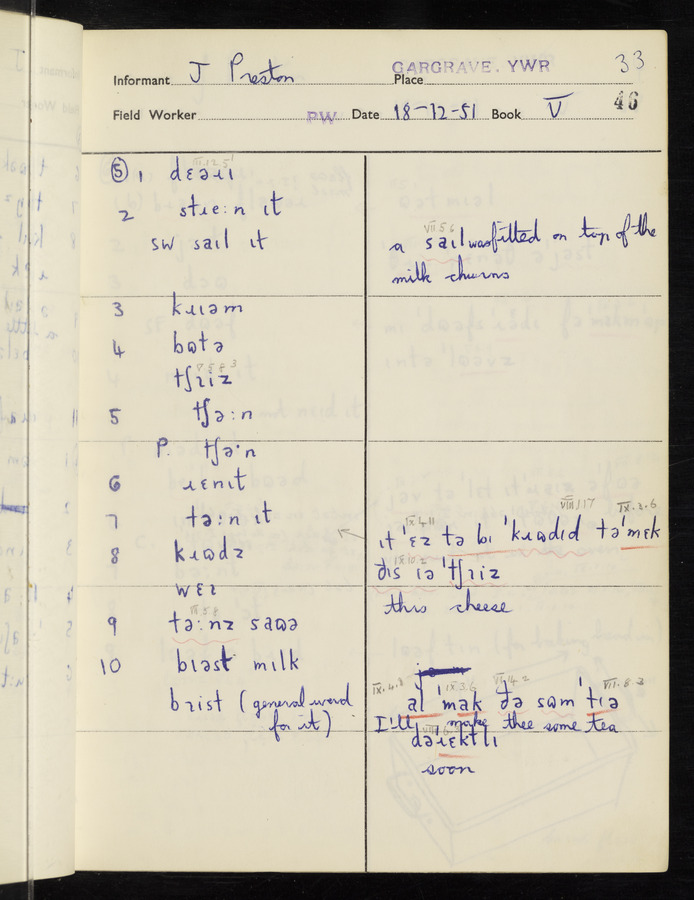 33
Informant J Preston Place GARGRAVE. YWR
Field Worker PW Date 18-12-51 Book V 46
VII.12.5
⑤ 1 dɛəɹɪ
2 stɪe:n ɪt
sw saɪl ɪt
VII 5 6
a saɪl was fitted on top of the
milk churns
3 kɹɪəm
4 bʊtə
tʃɹiz
5 tʃə:n
P. tʃə·n
6 ɹɛnɪt
7 tə:n ɪt
VIII.1.17 IX.3.6
IX 4.11
ɪt 'ɛz tə bɪ 'kɹʊdɪd tə'mɛk
8 kɹʊdz
IX 10.2
ðɪs ɪə 'tʃɹiz
wɛɪ
this cheese
III 5 8
9 tə:nz saʊə
10 bɪəst mɪlk
bɪɪst (general word
for it)
IX.4.8 IX 3.6 VI.14.2 VII.8.3
al 'mak ðə sʊm 'tɪə
I'll make thee some tea
dəɹɛktlɪ
soon